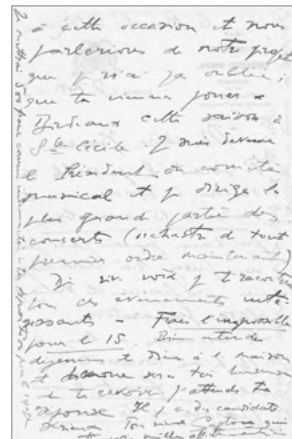 à cette occasion et nous
parlerions de notre projet
que je n'ai pas oublié,
que tu viennes jouer à
Bordeaux cette saison à
Ste Cécile. Je suis devenu
le Président du comité
musical et je dirige la
plus grande partie des
concerts (orchestre de tout
premier ordre maintenant)
De vive voix je te raconterai
tous ces événements inté-
ressants – Fais l'impossible
pour le 15. Bien entendu
déjeuner et dîner à la maison
et sera très heureuse
de te revoir. J'attends ta
réponse. Il y a des candidats
sérieux. Ton vieux qui
Je mettrai 500 francs comme à ta disposition pour le voyage